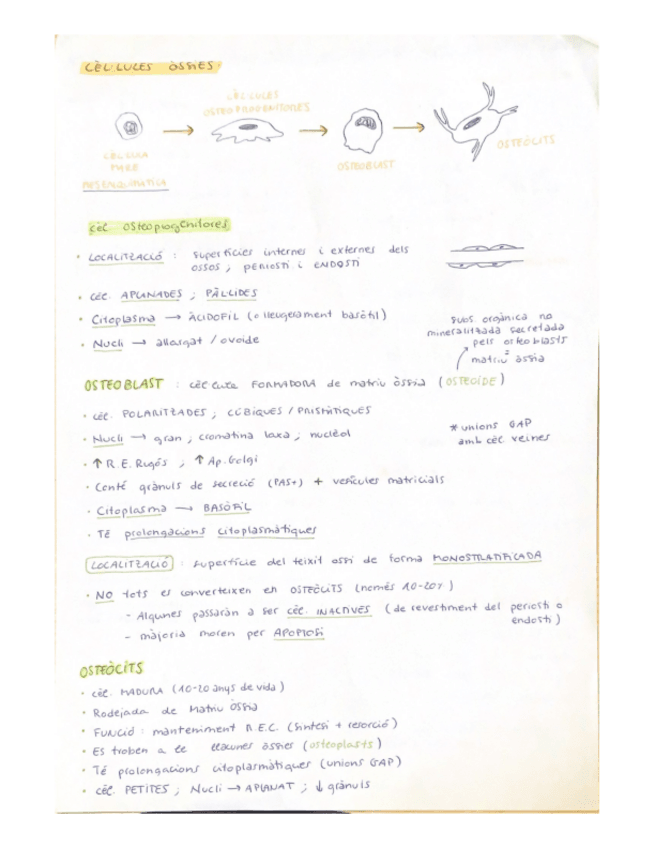 CÈL·LULES ÒSSIES
CÈL·LULA
MARE
MESENQUIMÀTICA
CÈL·LULES
OSTEOPROGENITORES
OSTEOBLAST
OSTEÒCITS
cèl. osteoprogenitores
• LOCALITZACIÓ : superfícies internes i externes dels
ossos ; PERIOSTI i ENDOSTI
• cèl. APLANADES ; PÀL·LIDES
• Citoplasma → ÀCIDOFIL (o lleugerament basòfil)
• Nucli → allargat / ovoide
subs orgànica no
mineralitzada secretada
pels osteoblasts
matriu òssia
OSTEOBLAST : cèl·lula FORMADORA de matriu òssia (OSTEOIDE)
• cèl. POLARITZADES ; CÚBIQUES / PRISMÀTIQUES
• Nucli → gran ; cromatina laxa ; nuclèol
• ↑ R.E. Rugós ; ↑ Ap. Golgi
• Conté grànuls de secreció (PAS+) + vesícules matricials
• Citoplasma → BASÒFIL
• Té prolongacions citoplasmàtiques
* unions GAP
amb cèl. veïnes
LOCALITZACIÓ : superfície del teixit ossi de forma MONOSTRATIFICADA
• NO tots es converteixen en OSTEÒCITS (només 10-20%)
- Algunes passaràn a ser cèl. INACTIVES (de revestiment del periosti o
endosti)
- màjoria moren per APOPTOSI
OSTEÒCITS
• cèl. MADURA (10-20 anys de vida)
• Rodejada de Matriu Òssia
• FUNCIÓ : manteniment R.E.C. (síntesi + resorció)
• Es troben a llacunes òssies (osteoplasts)
• Té prolongacions citoplasmàtiques (unions GAP)
• cèl. PETITES ; Nucli → APLANAT ; ↓ grànuls